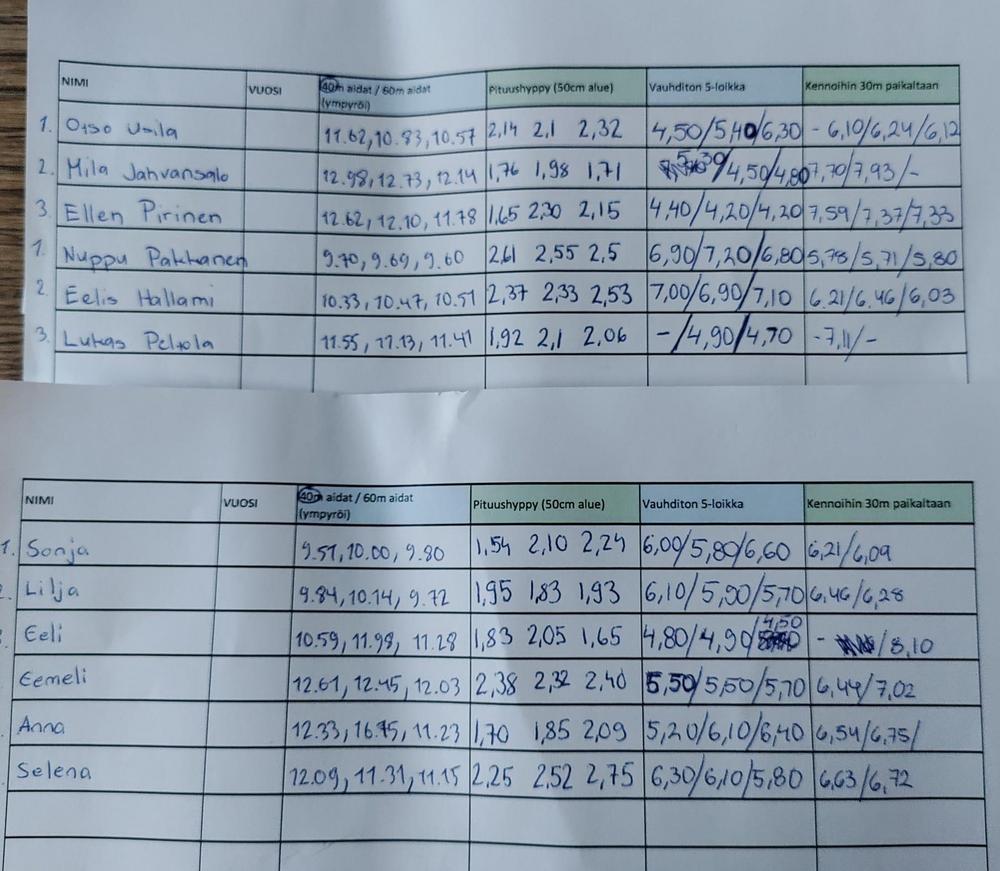 NIMI VUOSI 40m aidat / 60m aidat (ympyröi) Pituushyppy (50cm alue) Vauhditon 5-loikka Kennoihin 30m paikaltaan
1. Otso Usila 11.62, 10.83, 10.57 2,14 2,1 2,32 4,50/5,40/6,30 - 6,10/6,24/6,12
2. Mila Jahvansalo 12.98, 12.73, 12.14 1,76 1,98 1,71 5,30/4,50/4,80 7,70/7,93/-
3. Ellen Pirinen 12.62, 12.10, 11.78 1,65 2,30 2,15 4,40/4,20/4,20 7,59/7,37/7,33
1. Nuppu Pakkanen 9.70, 9.69, 9.60 2,61 2,55 2,5 6,90/7,20/6,80 5,78/5,71/5,80
2. Eelis Hallami 10.33, 10.47, 10.51 2,37 2,33 2,53 7,00/6,90/7,10 6.21/6.46/6,03
3. Lukas Peltola 11.55, 11.13, 11.41 1,92 2,1 2,06 -/4,90/4,70 -7,11/-
NIMI VUOSI 40m aidat / 60m aidat (ympyröi) Pituushyppy (50cm alue) Vauhditon 5-loikka Kennoihin 30m paikaltaan
1. Sonja 9.57, 10.00, 9.80 1,54 2,10 2,24 6,00/5,80/6,60 6,21/6,09
2. Lilja 9.84, 10.14, 9.72 1,95 1,83 1,93 6,10/5,90/5,70 6,46/6,28
Eeli 10.59, 11.98, 11.28 1,83 2,05 1,65 4,80/4,90/4,50 - /8,10
Eemeli 12.61, 12.45, 12.03 2,38 2,32 2,40 5,50/5,50/5,70 6,44/7,02
Anna 12.33, 16.75, 11.23 1,70 1,85 2,09 5,20/6,10/6,40 6,54/6,75/
Selena 12.09, 11.31, 11.15 2,25 2,52 2,75 6,30/6,10/5,80 6,63/6,72